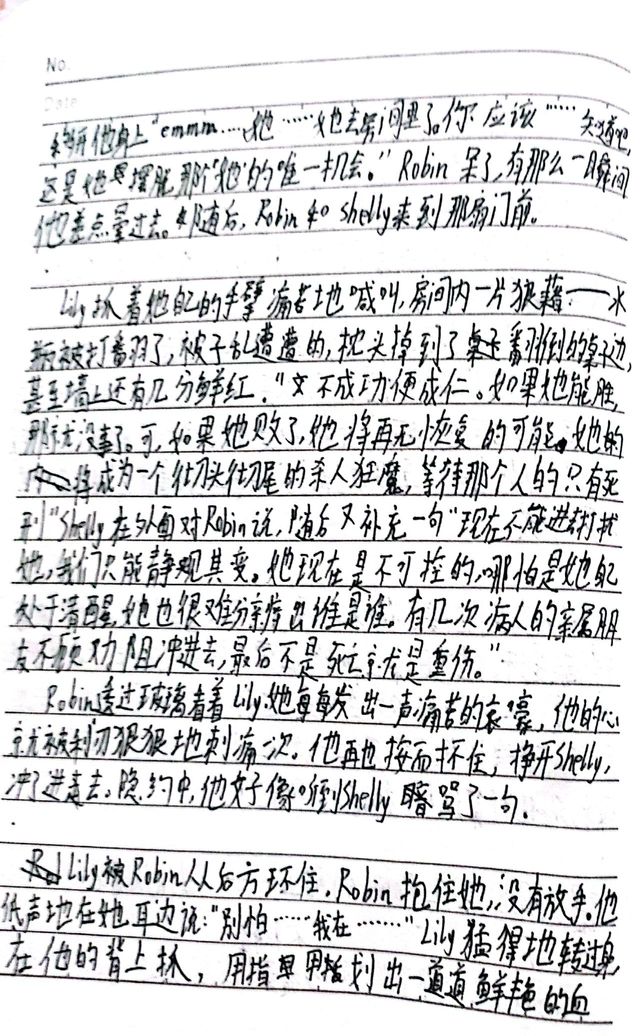 No.
Date
躺在他身上"emmm……她……她去房间里了。你应该……知道吧,
这是她摆脱那个"她"的唯一机会。"Robin呆了,有那么一瞬间
他差点晕过去。随后,Robin和shelly来到那扇门前。
Lily抓着她自己的手臂痛苦地喊叫,房间内一片狼藉——水
瓶被打翻了,被子乱遭遭的,枕头掉到了翻倒的桌边,
甚至墙上还有几分鲜红。"不成功便成仁。如果她能胜,
那就没事了。可,如果她败了,她将再无恢复的可能。她的
将成为一个彻头彻尾的杀人狂魔,等待那个人的只有死
刑"Shelly在外面对Robin说,随后又补充一句"现在不能进去打扰
她,我们只能静观其变。她现在是不可控的,哪怕是她自己
处于清醒,她也很难分辨得出谁是谁。有几次病人的亲属朋
友不顾劝阻冲进去,最后不是死亡就是重伤。"
Robin透过玻璃看着Lily,她每每发出一声痛苦的哀嚎,他的心
就被利刃狠狠地刺痛一次。他再也按而不住,挣开Shelly,
冲了进去。隐约中,他好像听到Shelly暗骂了一句。
Lily被Robin从后方环住。Robin抱住她,没有放手。他
低声地在她耳边说:"别怕……我在……"Lily猛得地转过身
在他的背上抓,用指甲划出一道道鲜艳的血